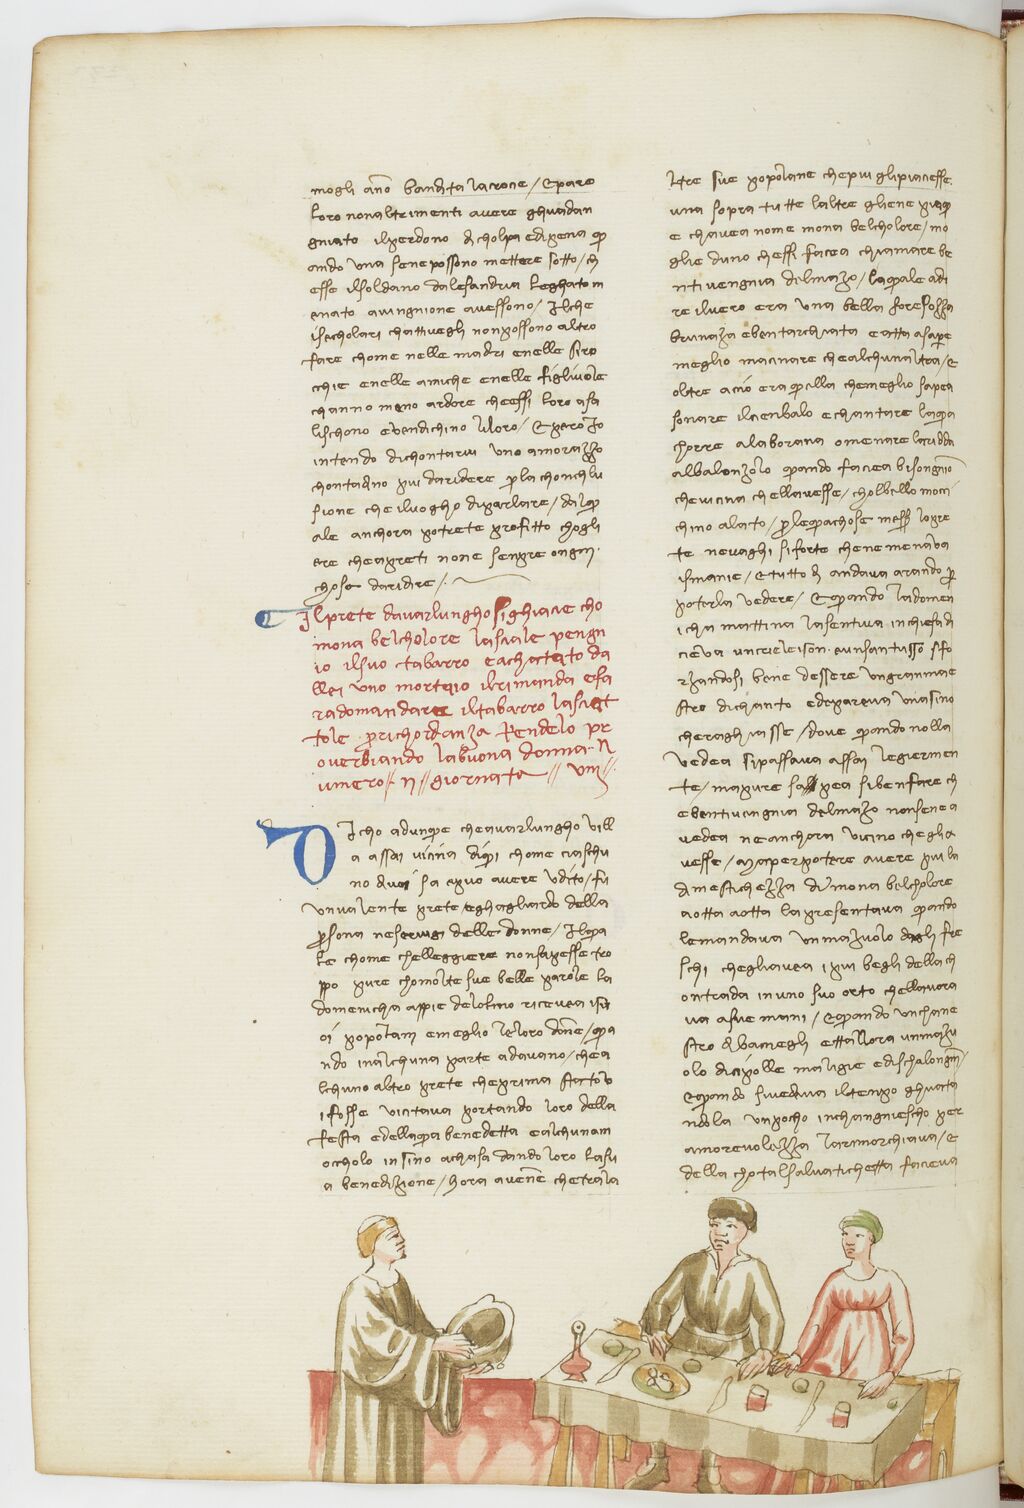 mogli ano bandita lacrocie / Epare
loro nonaltrimenti avere ghuadan
gniato ilperdono di cholpa edipena qu
ando una sene possono mettere sotto / ch
esse ilsoldano dalesandria leghato m
enato avingnione avessono / Ilche
isccholari chattivegli nonpossono altro
fare chome nelle madri enelle siro
cchie enelle amiche enelle figliuole
channo meno ardore cheessi loro asa
lischono evendichino illoro / E pero Io
intendo dichontarvi uno amorazzo
chontadino piu daridere per la chonchlu
sione che iluogho diparlare / dalqu
ale anchora potrete per frutto chogli
ere cheapreti none senpre ongni
chosa daridere /
Ilprete davarlungho sighiacie cho
mona belcholore lasciale pengn
io ilsuo tabarro eachattato da
llei uno mortaio ilrimanda efa
radomandare iltabarro lasciat
tole per richordanza Rendelo pr
overbiando labuona donna N
umero II giornata VIII
Dicho adunque cheavarlungho vill
a assai vicina diqui chome ciaschu
no di voi sa opuo avere udito / fu
unvalente prete eghagliardo della
persona neservigi delle donne / Ilqua
le chome chelleggiere nonsapesse tro
ppo pure chomolte sue belle parole la
domenicha appie delolmo ricreava isu
oi popolani emeglio leloro donne / qua
ndo inalchuna parte adavano / chea
lchuno altro prete cheprima stato v
i fosse vicitava portando loro della
festa edellaqua benedetta ealchunam
occholo insino achasa dando loro lasu
a benedizione / Hora avenne chetrala
ltre sue popolane chepiu glipiacesse
una sopra tutte laltre gliene piaqu
e chavea nome mona belcholore / mo
glie duno chessi facea chiamare be
ntivengnia delmazo / laquale adi
re ilvero era una bella foresozza
brunazza ebentarchiata eatta asape
meglio macinare chealchunaltra / e
oltre acio era quella chemeglio sapea
sonare ilcenbalo echantare laqua
chorre alaborana emenare laridda
albalonzolo quando facea bisongnio
chevicina chellavesse / cholbello mocci
chino alato / per lequachose messer lopre
te nevaghi siforte chene menava
ismanie / Etutto di andava arando per
poterla vedere / Equando ladomen
icha mattina lasentiva inchiesa di
cieva uncrieleison eunsantusso sfo
rzandosi bene dessere ungranmae
stro dichanto edipareva unasino
cheraghiasse / dove quando nolla
vedea sipassava assai legiermen
te / mapure sapea sibenfare ch
ebentivengnia delmazo nonsenea
vedea neanchora vicino cheglia
vesse / Maperpotere avere piu la
dimestichezza di mona belcholore
aotta aotta lapresentava quando
lemandava unmazuolo dagli fre
schi chegliavea ipiu begli dellach
ontrada inuno suo orto chellavora
va asue mani / Equando unchane
stro di baciegli ettallora unmazu
olo dicipolle maligie edischalongni /
Equando sivedeva iltempo ghuata
ndola unpocho inchangniescho per
amorevolezza larimorchiava / E
della chotalsalvatichetta faceva